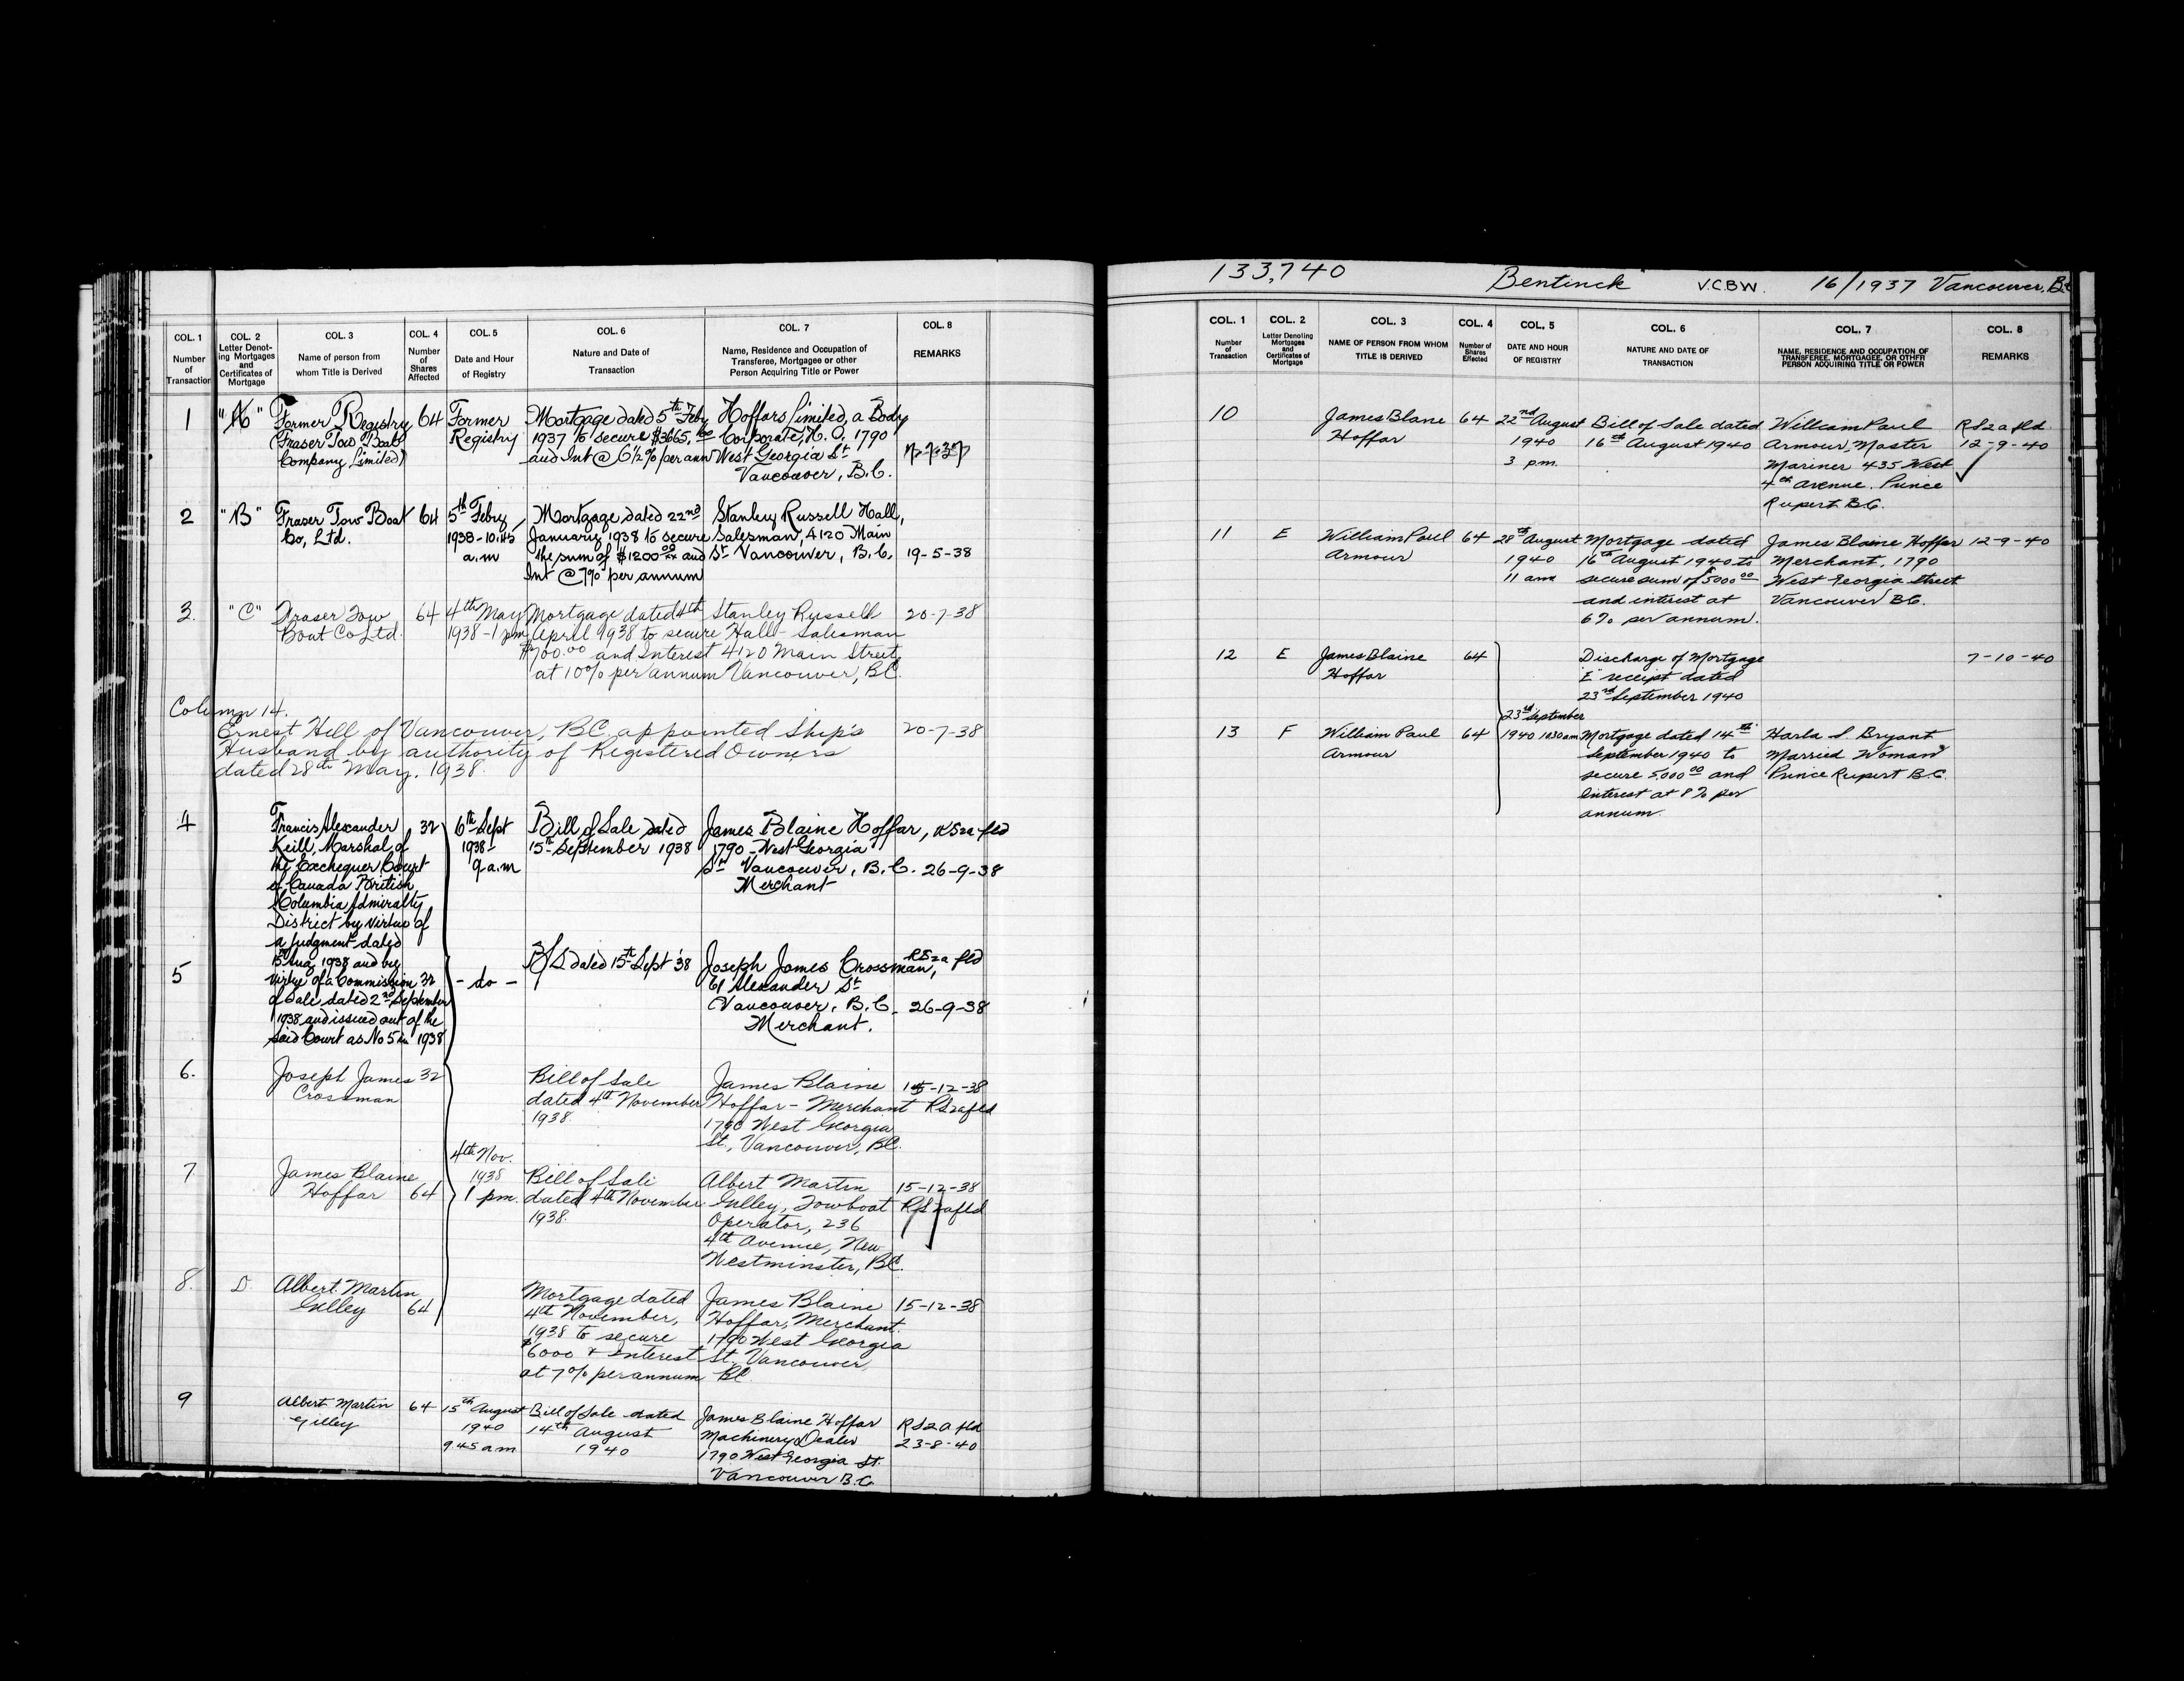 COL. 1
Number
of
Transaction
COL. 2
Letter Denot-
ing Mortgages
and
Certificates of
Mortgage
COL. 3
Name of person from
whom Title is Derived
COL. 4
Number
of
Shares
Affected
COL. 5
Date and Hour
of Registry
COL. 6
Nature and Date of
Transaction
COL. 7
Name, Residence and Occupation of
Transferee, Mortgagee or other
Person Acquiring Title or Power
COL. 8
REMARKS
1
"A"
Former Registry
(Fraser Tow Boat
Company Limited)
64
Former
Registry
Mortgage dated 5th Feby
1937 to secure $3665.00
and Int @ 6½% per ann
Hoffars Limited, a Body
Corporate, H.O. 1790
West Georgia St
Vancouver, B.C.
2
"B"
Fraser Tow Boat
Co, Ltd.
64
5th Feby
1938-10:45
a.m
Mortgage dated 22nd
January 1938 to secure
the sum of $1200 00/xx and
Int @ 7% per annum
Stanley Russell Hall,
Salesman, 4120 Main
St Vancouver, B.C.
19-5-38
3.
"C"
Fraser Tow
Boat Co Ltd.
64
4th May
1938-1 pm
Mortgage dated 4th
April 1938 to secure
$700.00 and Interest
at 10% per annum
Stanley Russell
Hall - Salesman
4120 Main Street
Vancouver, BC.
20-7-38
Column 14.
Ernest Hill of Vancouver, BC. appointed Ship's
Husband by authority of Registered Owners
dated 28th May. 1938.
20-7-38
4
Francis Alexander
Reill, Marshal of
the Exchequer Court
of Canada British
Columbia Admiralty
District by virtue of
a judgment dated
15 Aug 1938 and by
virtue of a Commission
of Sale dated 2nd September
1938 and issued out of the
said Court as No 5 in 1938
32
6th Sept
1938-
9 a.m
Bill of Sale dated
15th September 1938
James Blaine Hoffar,
1790 West Georgia
St Vancouver, B.C.
Merchant
RS2a fld
26-9-38
5
32
- do -
B/S dated 15th Sept '38
Joseph James Crossman,
61 Alexander St
Vancouver, B.C.
Merchant.
RS2a fld
26-9-38
6.
Joseph James
Crossman
32
Bill of Sale
dated 4th November
1938.
James Blaine
Hoffar - Merchant
1790 West Georgia
St., Vancouver, BC.
15-12-38
RS2a fld
7.
James Blaine
Hoffar
64
4th Nov.
1938
1 pm.
Bill of Sale
dated 4th November
1938.
Albert Martin
Gilley, Towboat
Operator, 236
4th Avenue, New
Westminster, BC.
15-12-38
RS2a fld
8.
D
Albert Martin
Gilley
64
Mortgage dated
4th November,
1938 to secure
$6000 & Interest
at 7% per annum
James Blaine
Hoffar, Merchant.
1790 West Georgia
St. Vancouver,
BC.
15-12-38
9
Albert Martin
Gilley
64
15th August
1940
9.45 am
Bill of Sale dated
14th August
1940
James Blaine Hoffar
Machinery Dealer
1790 West Georgia St.
Vancouver B.C
RS2a fld
23-8-40
133,740
Bentinck
V.C.BW.
16/1937 Vancouver, B.C
COL. 1
Number
of
Transaction
COL. 2
Letter Denoting
Mortgages
and
Certificates of
Mortgage
COL. 3
NAME OF PERSON FROM WHOM
TITLE IS DERIVED
COL. 4
Number of
Shares
Affected
COL. 5
DATE AND HOUR
OF REGISTRY
COL. 6
NATURE AND DATE OF
TRANSACTION
COL. 7
NAME, RESIDENCE AND OCCUPATION OF
TRANSFEREE, MORTGAGEE, OR OTHER
PERSON ACQUIRING TITLE OR POWER
COL. 8
REMARKS
10
James Blane
Hoffar
64
22nd August
1940
3 p.m.
Bill of Sale dated
16th August 1940
William Paul
Armour, Master
Mariner 435 West
4th Avenue. Prince
Rupert B.C.
RS2a fld.
12-9-40
11
E
William Paul
Armour
64
28th August
1940
11 am
Mortgage dated
16th August 1940 to
secure sum of $5000 00
and interest at
6% per annum.
James Blaine Hoffar
Merchant, 1790
West Georgia Street
Vancouver B.C.
12-9-40
12
E
James Blaine
Hoffar
64
Discharge of Mortgage
"E" receipt dated
23rd September 1940
7-10-40
13
F
William Paul
Armour
64
23rd September
1940 10.30 am
Mortgage dated 14th
September 1940 to
secure 5,000 00 and
Interest at 8% per
annum.
Harla S. Bryant
Married Woman
Prince Rupert B.C.